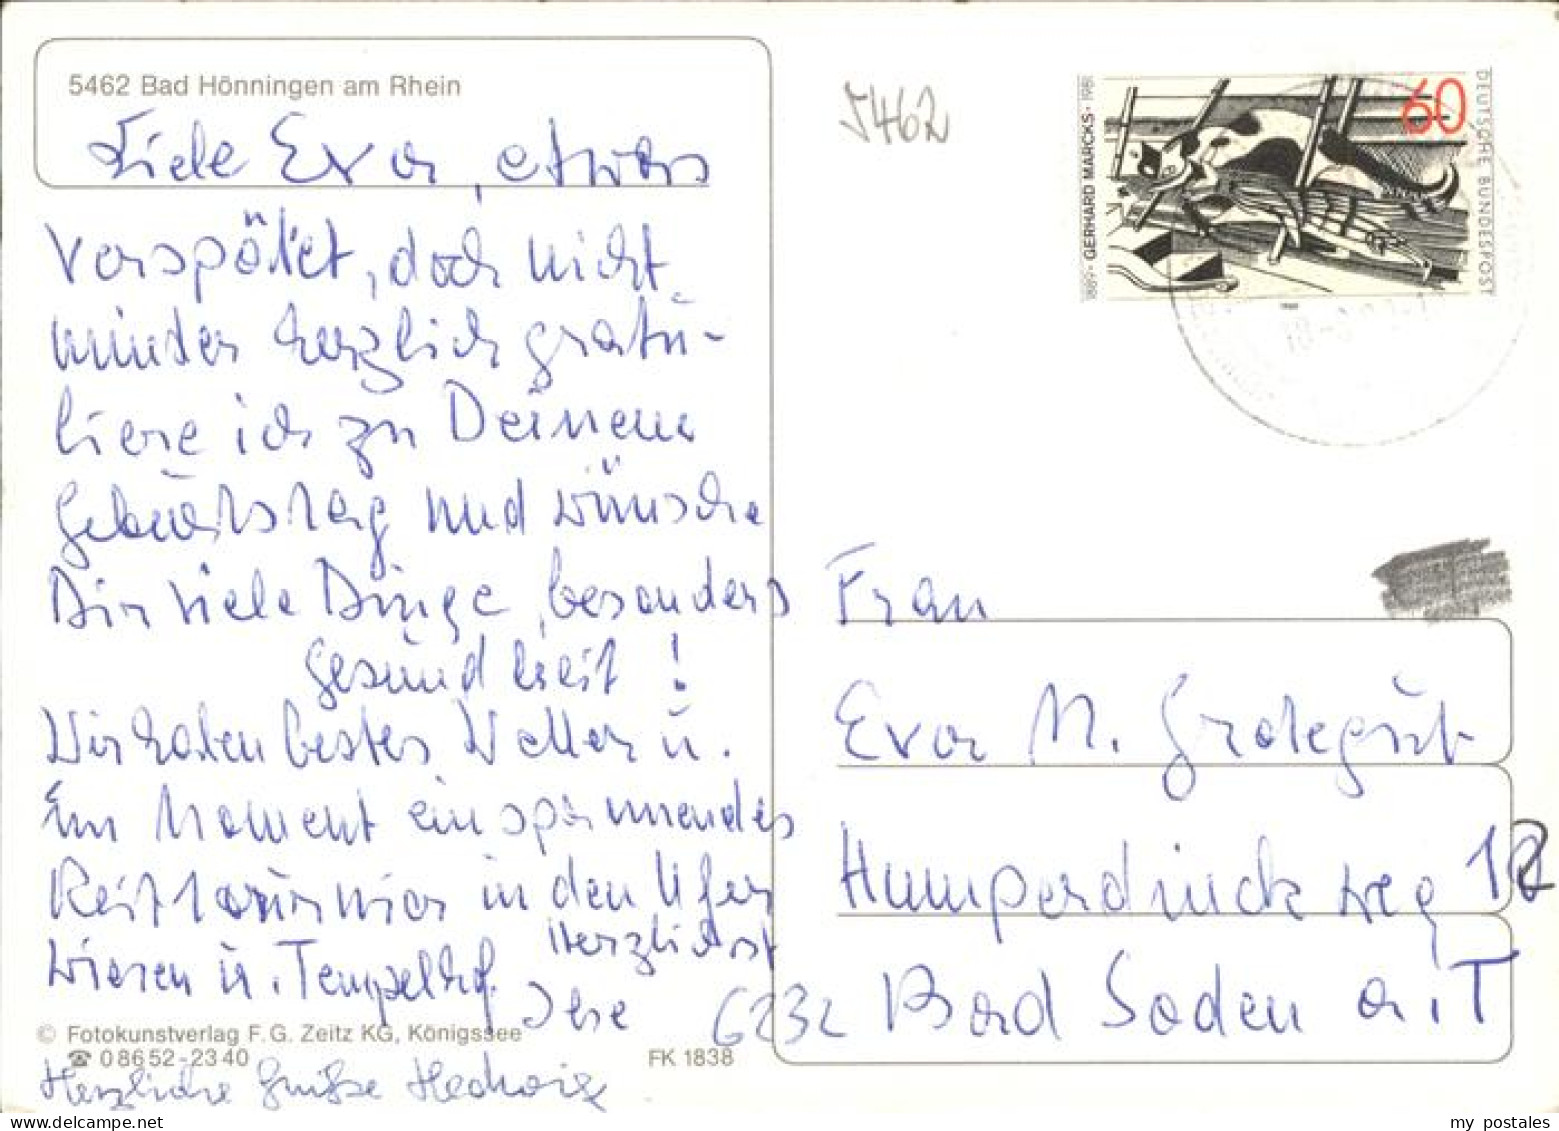 5462 Bad Hönningen am Rhein
Liebe Eva, etwas
verspätet, doch nicht
minder herzlich gratu-
liere ich zu Deinem
Geburtstag und wünsche
Dir viele Dinge, besonders
Gesundheit!
Wir haben bestes Wetter u.
im Moment ein spannendes
Reitturnier in den Ufer
wiesen u. Tempelhof.
Herzlichst
Ilse
© Fotokunstverlag F. G. Zeitz KG, Königssee
☎ 0 86 52 - 23 40
FK 1838
Herzliche Grüße Hedwig
5462
60
DEUTSCHE BUNDESPOST
1889 · GERHARD MARCKS · 1981
Frau
Eva M. Grotegut
Humperdinck weg 12
6232 Bad Soden a. T
my postales